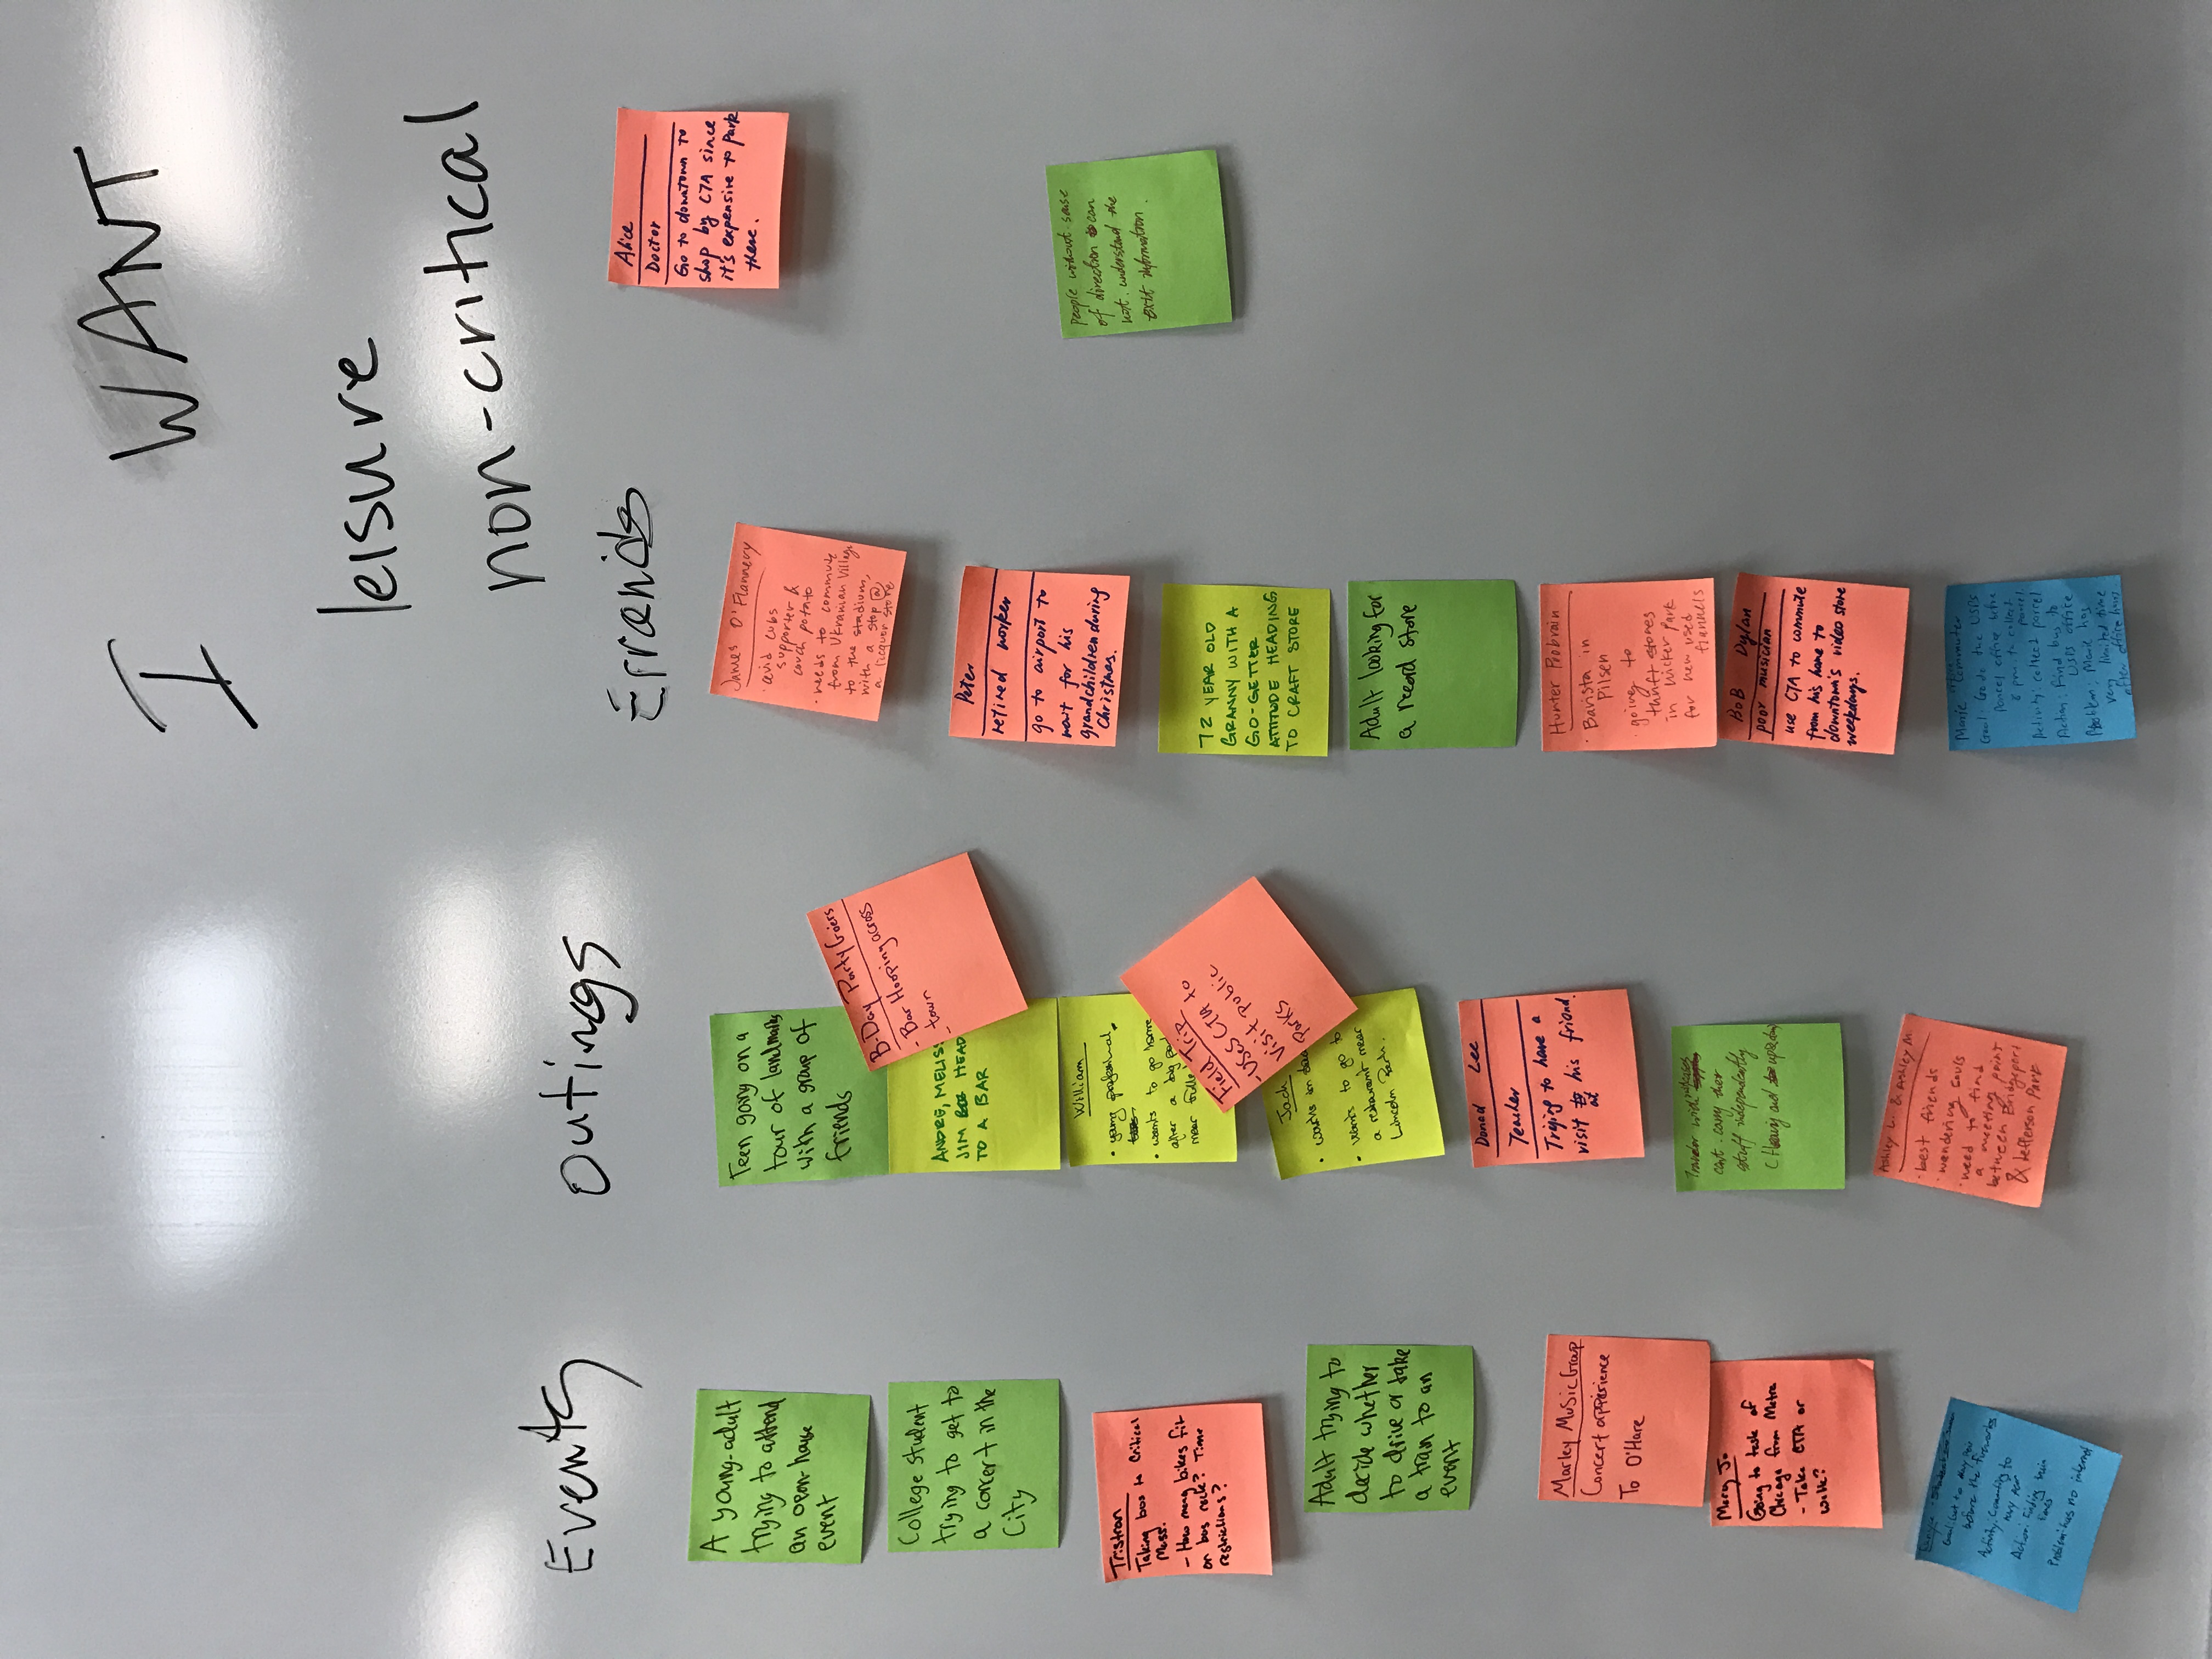 I WANT
leisure
non-critical
Events
A young-adult
trying to attend
an open-house
event
College student
trying to get to
a concert in the
City
Tristran
Taking bus to Critical
Mass.
- How many bikes fit
on bus rack? Time
restrictions?
Adult trying to
decide whether
to drive or take
a train to an
event
Marley Music Group
Concert
To O'Hare
Mary Jo
Going to taste of
Chicago from Metra
- Take CTA or
walk?
Goal: Get to navy pier
before the fireworks
Activity: Commuting to
navy pier
Action: Finding train
times
Problem: has no internet
Outings
Teen going on a
tour of landmarks
with a group of
friends
B-Day Party Goers
- Bar Hopping across
- town
ANDRE, MELISS
JIM HEAD
TO A BAR
William
• young professional
• wants to go home
after a big
near
Field Trip
- Uses CTA to
visit public
parks
Jack
• works in
• wants to go to
a restaurant near
Lincoln Park.
Donad Lee
Teacher
Trying to have a
visit at his friend.
Traveler with suitcases
cant carry their
stuff independently
(Heavy and up & down)
Ashley L. & Ashley M.
• best friends
• wandering souls
• need to find
a meeting point
between Bridgeport
& Jefferson Park
Errands
James O'Flannery
• avid cubs
supporter &
couch potato
• needs to commute
from Ukranian Village
to the stadium,
with a stop @
a licquor store
Peter
retired worker
go to airport to
wait for his
grandchildren during
Christmas.
72 YEAR OLD
GRANNY WITH A
GO-GETTER
ATTITUDE HEADING
TO CRAFT STORE
Adult looking for
a record store
Hunter Probrain
• Barista in
Pilsen
• going to
thrift stores
in Wicker Park
for new used
flannels
BOB Dylan
poor musician
use CTA to commute
from his home to
downtown's video store
weekdays.
Marie office Commuter
Goal: Go to the USPS
Parcel office before
8 pm. to collect
parcel
Activity: collect parcel
Action: Find bus to
USPS office
Problem: Marie has
very limited time
after office hours.
Alice
Doctor
Go to downtown to
shop by CTA since
it's expensive to park
there.
people without sense
of direction can
not understand the
exit information.